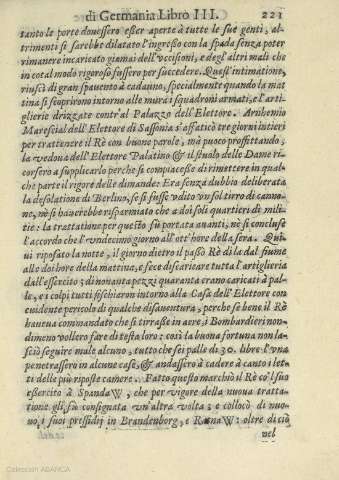 di Germania Libro III. 221
tanto le porte douessero esser aperte à tutte le sue genti, al-
trimenti si sarebbe dilatato l'ingresso con la spada senza poter
rimanere incaricato giamai dell'vccisioni, e degl'altri mali che
in cotal modo rigoroso fussero per succedere. Quest'intimatione,
riuscì di gran spauento à cadauno, specialmente quando la mat
tina si scoprirono intorno alle mura i squadroni armati, e l'arti-
glierie drizzate contr'al Palazzo dell'Elettore. Arnhemio
Marescial dell'Elettore di Sassonia s'affaticò tre giorni intieri
per trattenere il Rè con buone parole, ma puoco profittando,
la vedoua dell'Elettore Palatino & il stuolo delle Dame ri-
corsero a supplicarlo perche si compiacesse di rimettere in qual
che parte il rigore delle dimande: Era senza dubbio deliberata
la desolatione di Berlino, se si fusse vdito vn sol tirro di canno-
ne, nè si hauerebbe risparmiato che a doi soli quartieri di mili-
tie: la trattatione per questo fù portata auanti, nè si concluse
l'accordo che l'vndecimo giorno all'ott'hore della sera. Qui-
ui riposato la notte, il giorno dietro il passò Rè di la dal fiume
alle doi hore della mattina, e fece discaricare tutta l'artigliaria
dall'essercito; di nonanta pezzi quaranta erano caricati à pal-
le, e i colpi tutti fischiaron intorno alla Casa dell'Elettore con
euidente pericolo di qualche disauentura, perche se bene il Rè
haueua commandato che si tirasse in aere, i Bombardieri non-
dimeno vollero fare di testa loro: così la buona fortuna non la-
sciò seguire male alcuno, tutto che sei palle di 30. libre l'vna
penetrassero in alcune case, & andassero à cadere à canto i let-
ti delle più riposte camere. Fatto questo marchiò il Rè co'l suo
essercito à SpandaW, che per vigore della nuoua tratta-
tione gli fù consignata vn'altra volta; e collocò di nuo-
uo, i suoi pressidij in Brandenborg, e RatnaW: oltre di ciò
nel
Colección ABANCA